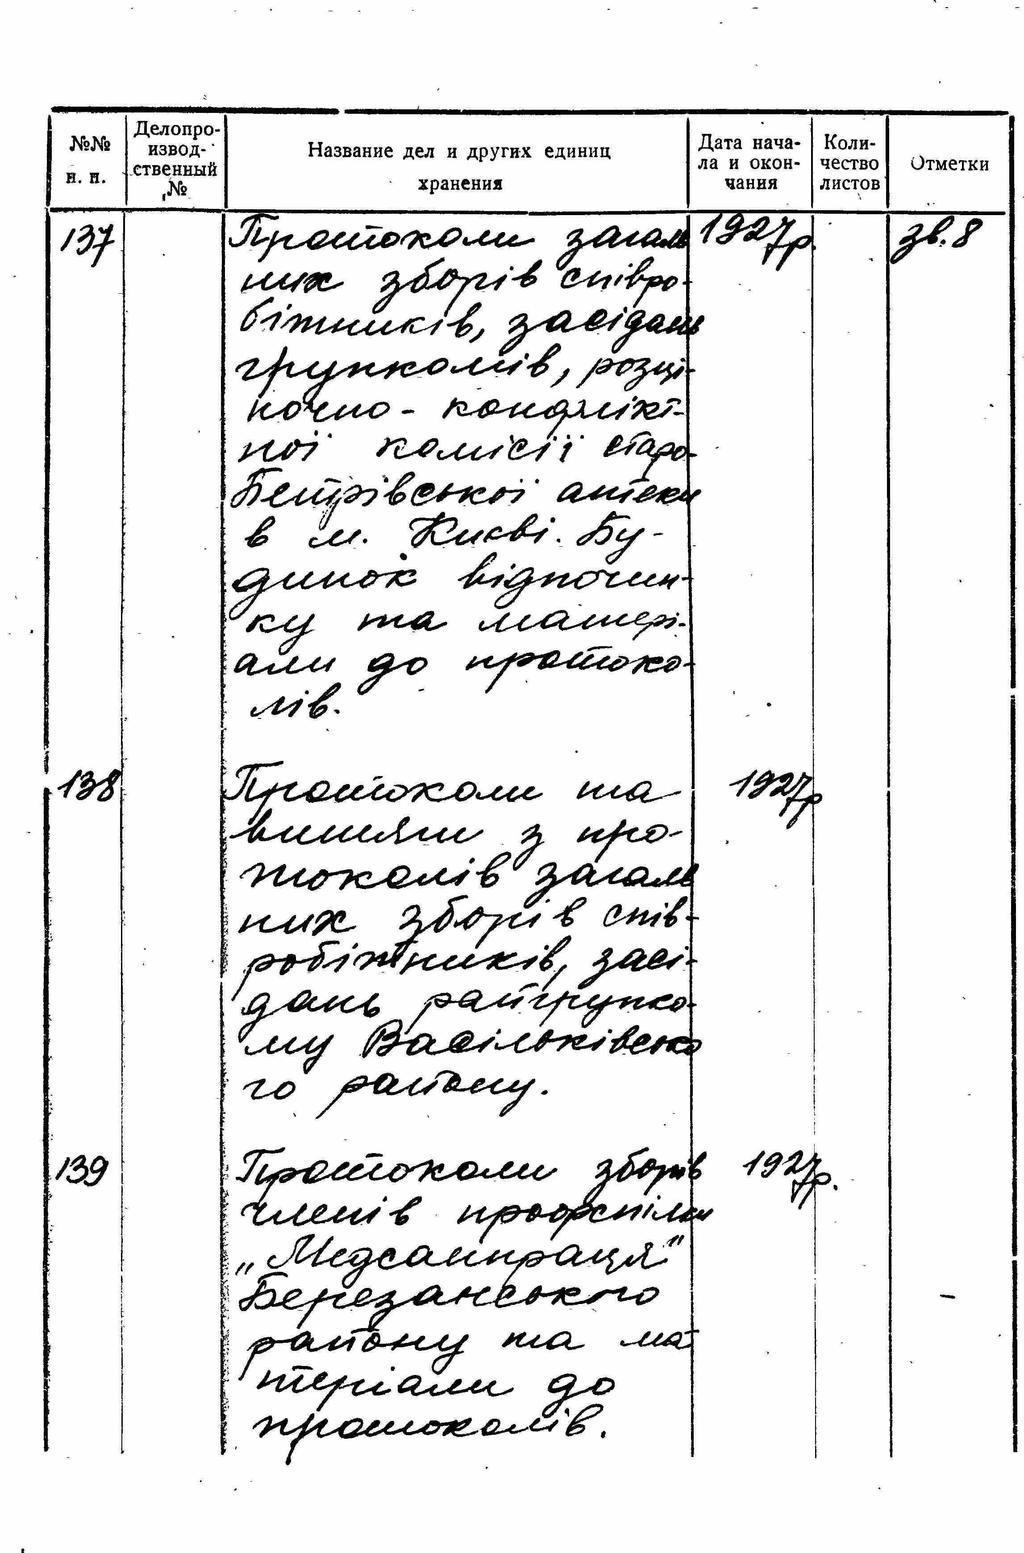 №№ п. п. Делопро-извод-ственный № Название дел и других единиц хранения Дата нача-ла и окон-чания Коли-чество листов Отметки
137 Протоколи загаль 1927р. зв. 8
них зборів співро-
бітників, засідань
групкомів, розці-
ночно - конфлікт-
ної комісії старо-
Петрівської аптеки
в м. Києві. Бу-
динок відпочин-
ку та матері-
али до протоко-
лів.
138 Протоколи та 1927р
витяги з про-
токолів загаль
них зборів спів-
робітників, засі-
дань райгрупко-
му Васільківсько
го району.
139 Протоколи зборів 1927р.
членів профспілки
„Медсанпраця"
Березанського
району та ма-
теріали до
протоколів.